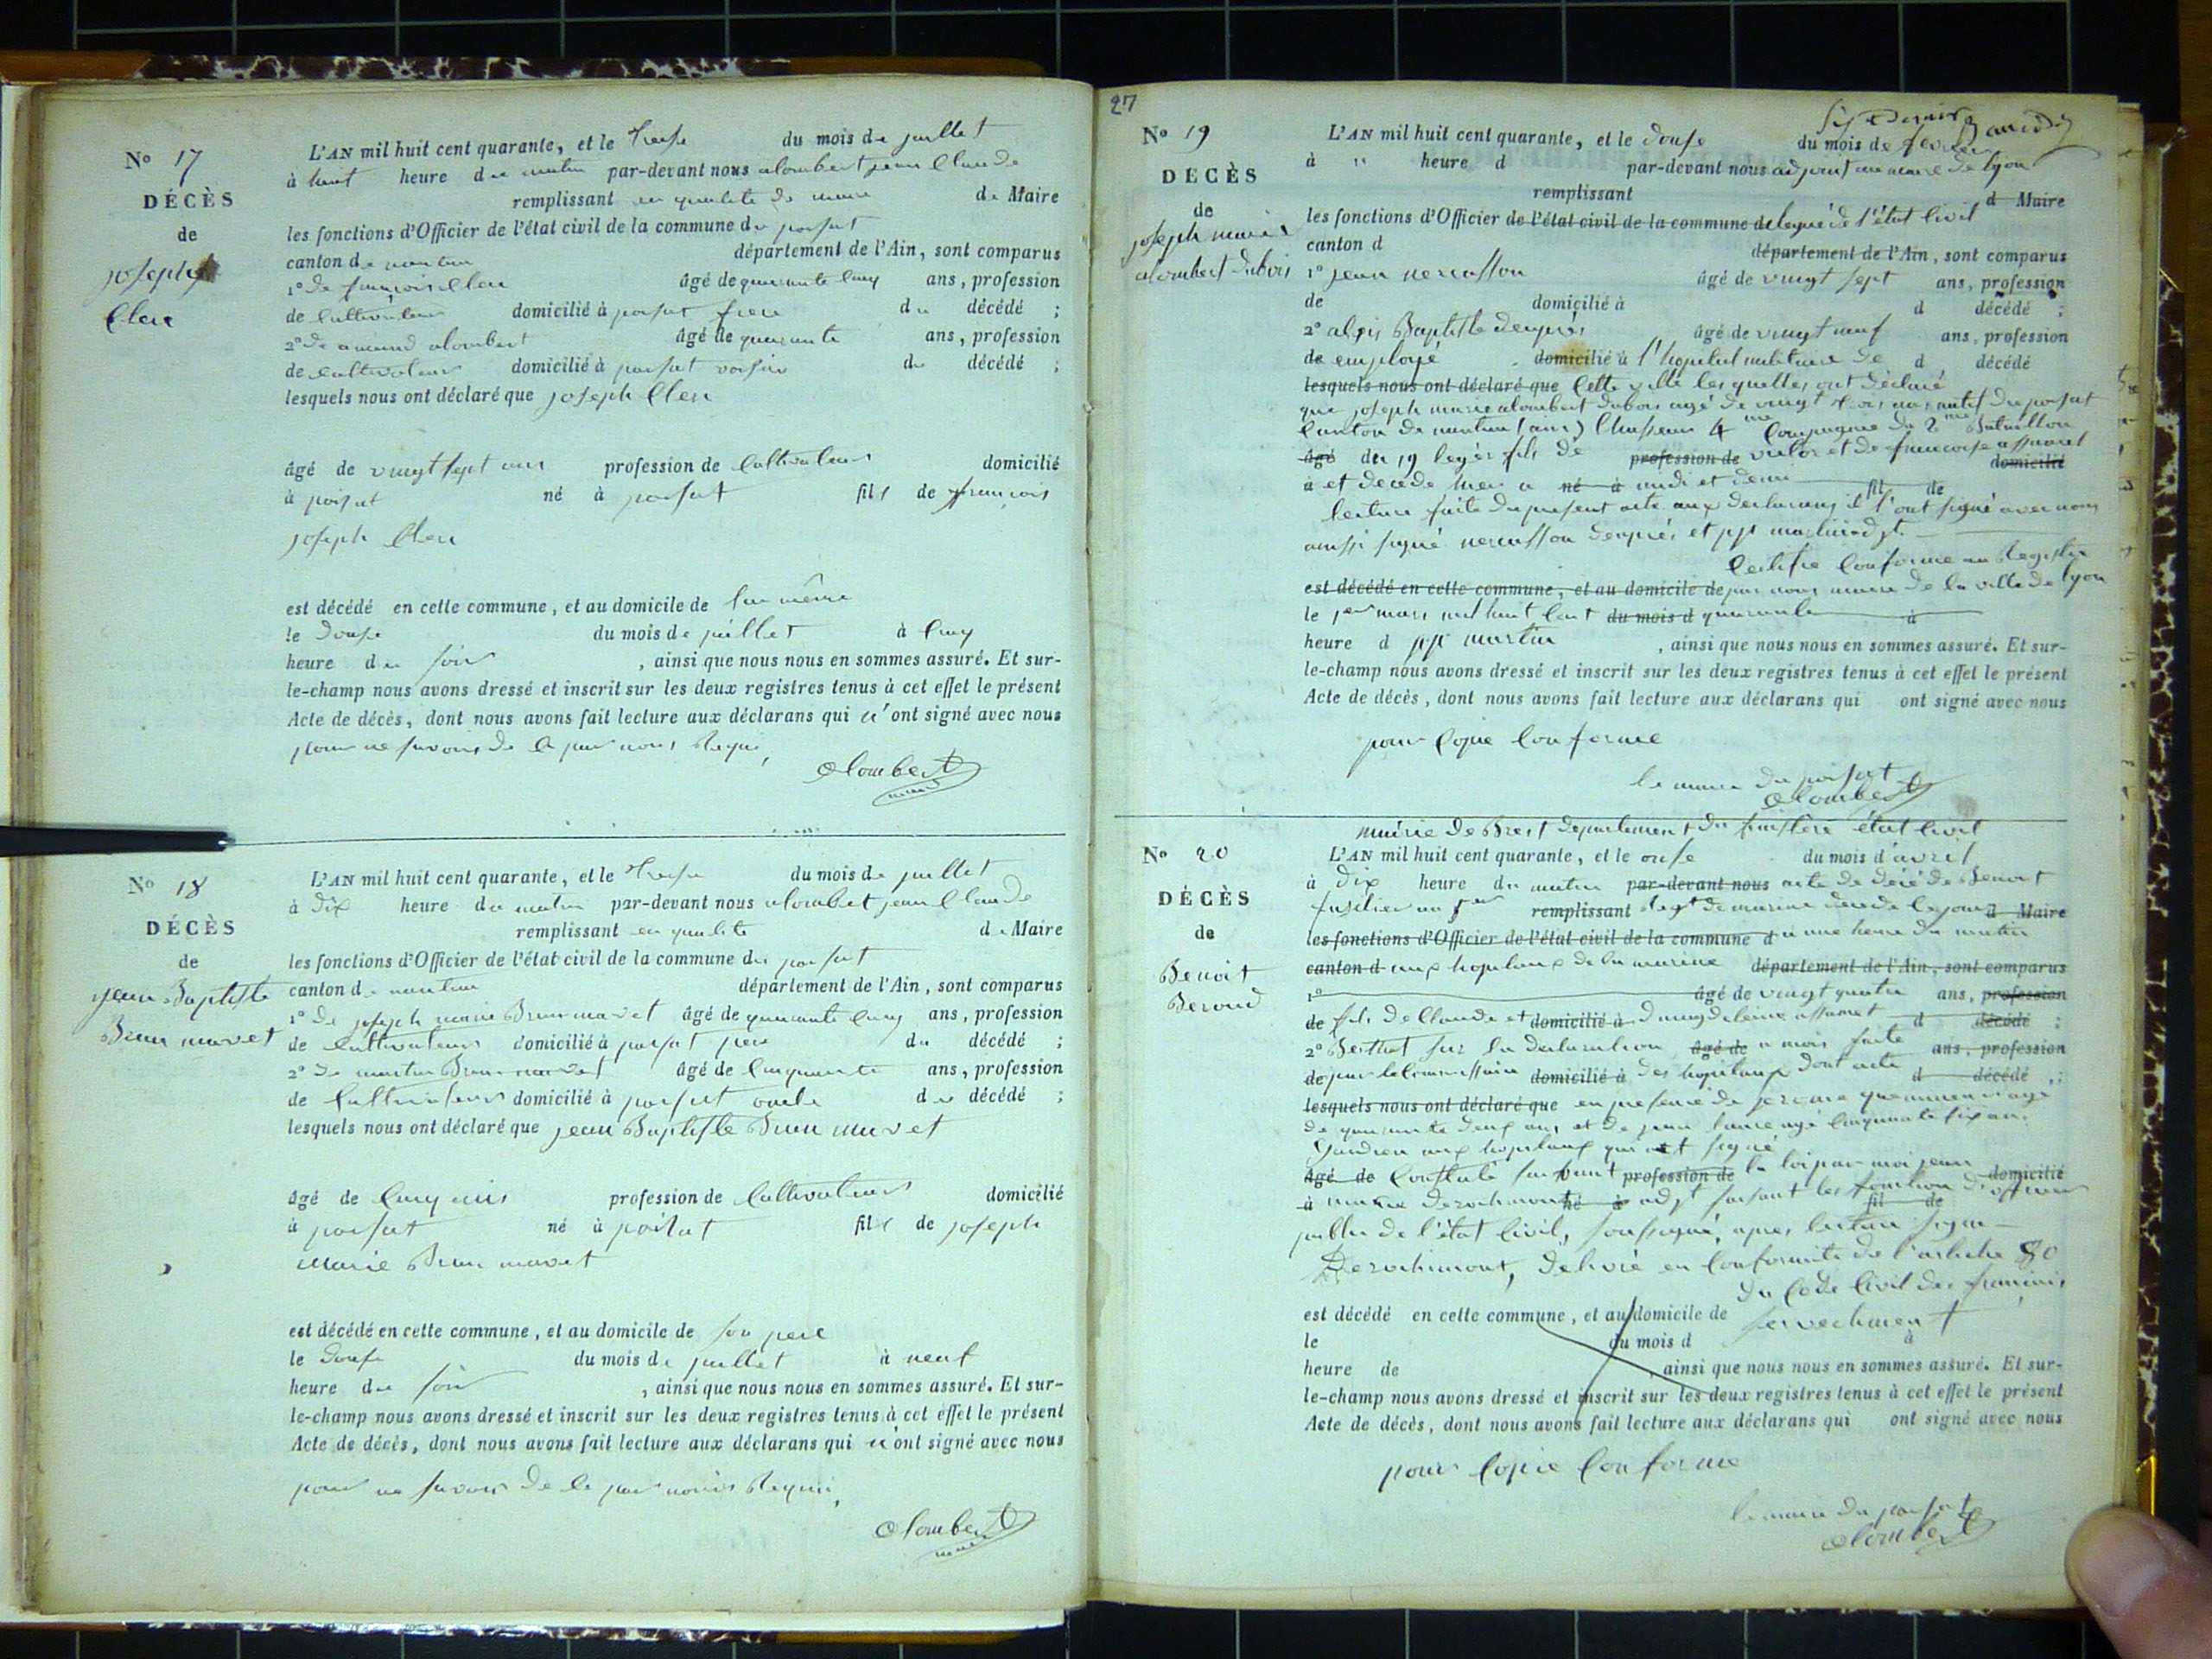 N° 17
DÉCÈS
de
joseph
Clerc
L'AN mil huit cent quarante, et le treise du mois de juillet
à huit heure du matin par-devant nous alombert jean Claude
remplissant en qualite de maire de Maire
les fonctions d'Officier de l'état civil de la commune de
canton de département de l'Ain, sont comparus
1° de françois Clerc âgé de quarante cinq ans, profession
de Cultivateur domicilié à frere du décédé ;
2° de alombert âgé de quarante ans, profession
de Cultivateur domicilié à voisin du décédé ;
lesquels nous ont déclaré que joseph Clerc
âgé de vingt sept ans profession de Cultivateur domicilié
à né à fils de françois
joseph Clerc
est décédé en cette commune, et au domicile de lui même
le douse du mois de juillet à Cinq
heure du soir , ainsi que nous nous en sommes assuré. Et sur-
le-champ nous avons dressé et inscrit sur les deux registres tenus à cet effet le présent
Acte de décès, dont nous avons fait lecture aux déclarans qui n'ont signé avec nous
pour ne savoir de le par nous Requi,
alombert
N° 18
DÉCÈS
de
jean Baptiste
Brun
L'AN mil huit cent quarante, et le treise du mois de juillet
à dix heure du matin par-devant nous alombert jean Claude
remplissant en qualite de Maire
les fonctions d'Officier de l'état civil de la commune de
canton de département de l'Ain, sont comparus
1° de joseph marie Brun âgé de quarante cinq ans, profession
de Cultivateur domicilié à pere du décédé ;
2° de martin Brun âgé de Cinquante ans, profession
de Cultivateur domicilié à oncle du décédé ;
lesquels nous ont déclaré que jean Baptiste Brun
âgé de Cinq ans profession de Cultivateur domicilié
à né à fils de joseph
Marie Brun
est décédé en cette commune, et au domicile de son pere
le douse du mois de juillet à neuf
heure du soir , ainsi que nous nous en sommes assuré. Et sur-
le-champ nous avons dressé et inscrit sur les deux registres tenus à cet effet le présent
Acte de décès, dont nous avons fait lecture aux déclarans qui n'ont signé avec nous
pour ne savoir de le par nous Requi,
alombert
27
N° 19
DÉCÈS
de
joseph marie
alombert dubois
L'AN mil huit cent quarante, et le douse du mois de fevrier
à " heure d par-devant nous adjoint au maire de lyon
remplissant d Maire
les fonctions d'Officier de l'état civil de la commune de legué de l'état Civil
canton d département de l'Ain, sont comparus
1° jean âgé de vingt sept ans, profession
de domicilié à d décédé ;
2° Baptiste âgé de vingt neuf ans, profession
de employé domicilié à l'hopital militaire de d décédé
lesquels nous ont déclaré que Cette ville lesquelles ont déclaré
que joseph marie alombert dubois agé de vingt trois ans natif de
Canton de (ain) Chasseur 4me Compagnie du 2me Bataillon
âgé du 19 leger fils de profession de et de francoise domicilié
à et décédé hier a né à midi et demi fil de
lecture faite du present acte aux declarans il l'ont signé avec nous
ainsi signé et martin adjt.
Certifié Conforme au Registre
est décédé en cette commune, et au domicile de par nous maire de la ville de lyon
le 1er mars mil huit Cent du mois d quarante à
heure d martin , ainsi que nous nous en sommes assuré. Et sur-
le-champ nous avons dressé et inscrit sur les deux registres tenus à cet effet le présent
Acte de décès, dont nous avons fait lecture aux déclarans qui ont signé avec nous
pour Copie Conforme
le maire de
alombert
mairie de Brest departement du finistère état Civil
N° 20
DÉCÈS
de
Benoit
Beroud
L'AN mil huit cent quarante, et le onse du mois d'avril
à dix heure du matin par-devant nous acte de décé de Benoit
fusilier au 1er remplissant de marine decede d Maire
les fonctions d'Officier de l'état civil de la commune d a une heure du matin
canton d aux hopitaux de la marine département de l'Ain, sont comparus
1° âgé de vingt quatre ans, profession
de fils de Claude et domicilié à d magdeleine d décédé ;
2° sur la declaration âgé de a mois faite ans, profession
de par le Commissaire domicilié à des hopitaux dont acte d décédé ;
lesquels nous ont déclaré que en presence de jerome agé
de quarante deux ans et de jean agé Cinquante six ans
Gardien aux hopitaux qui ont signé
âgé de Constaté suivant profession de la loi par moi jean domicilié
à né à adjt faisant les fonction d'officier fil de
public de l'état Civil, soussigné, apres lecture signe
Derochimont, delivré en Conformité de l'article 80
du Code Civil des francais
est décédé en cette commune, et au domicile de
le du mois d à
heure de , ainsi que nous nous en sommes assuré. Et sur-
le-champ nous avons dressé et inscrit sur les deux registres tenus à cet effet le présent
Acte de décès, dont nous avons fait lecture aux déclarans qui ont signé avec nous
pour Copie Conforme
le maire de
alombert